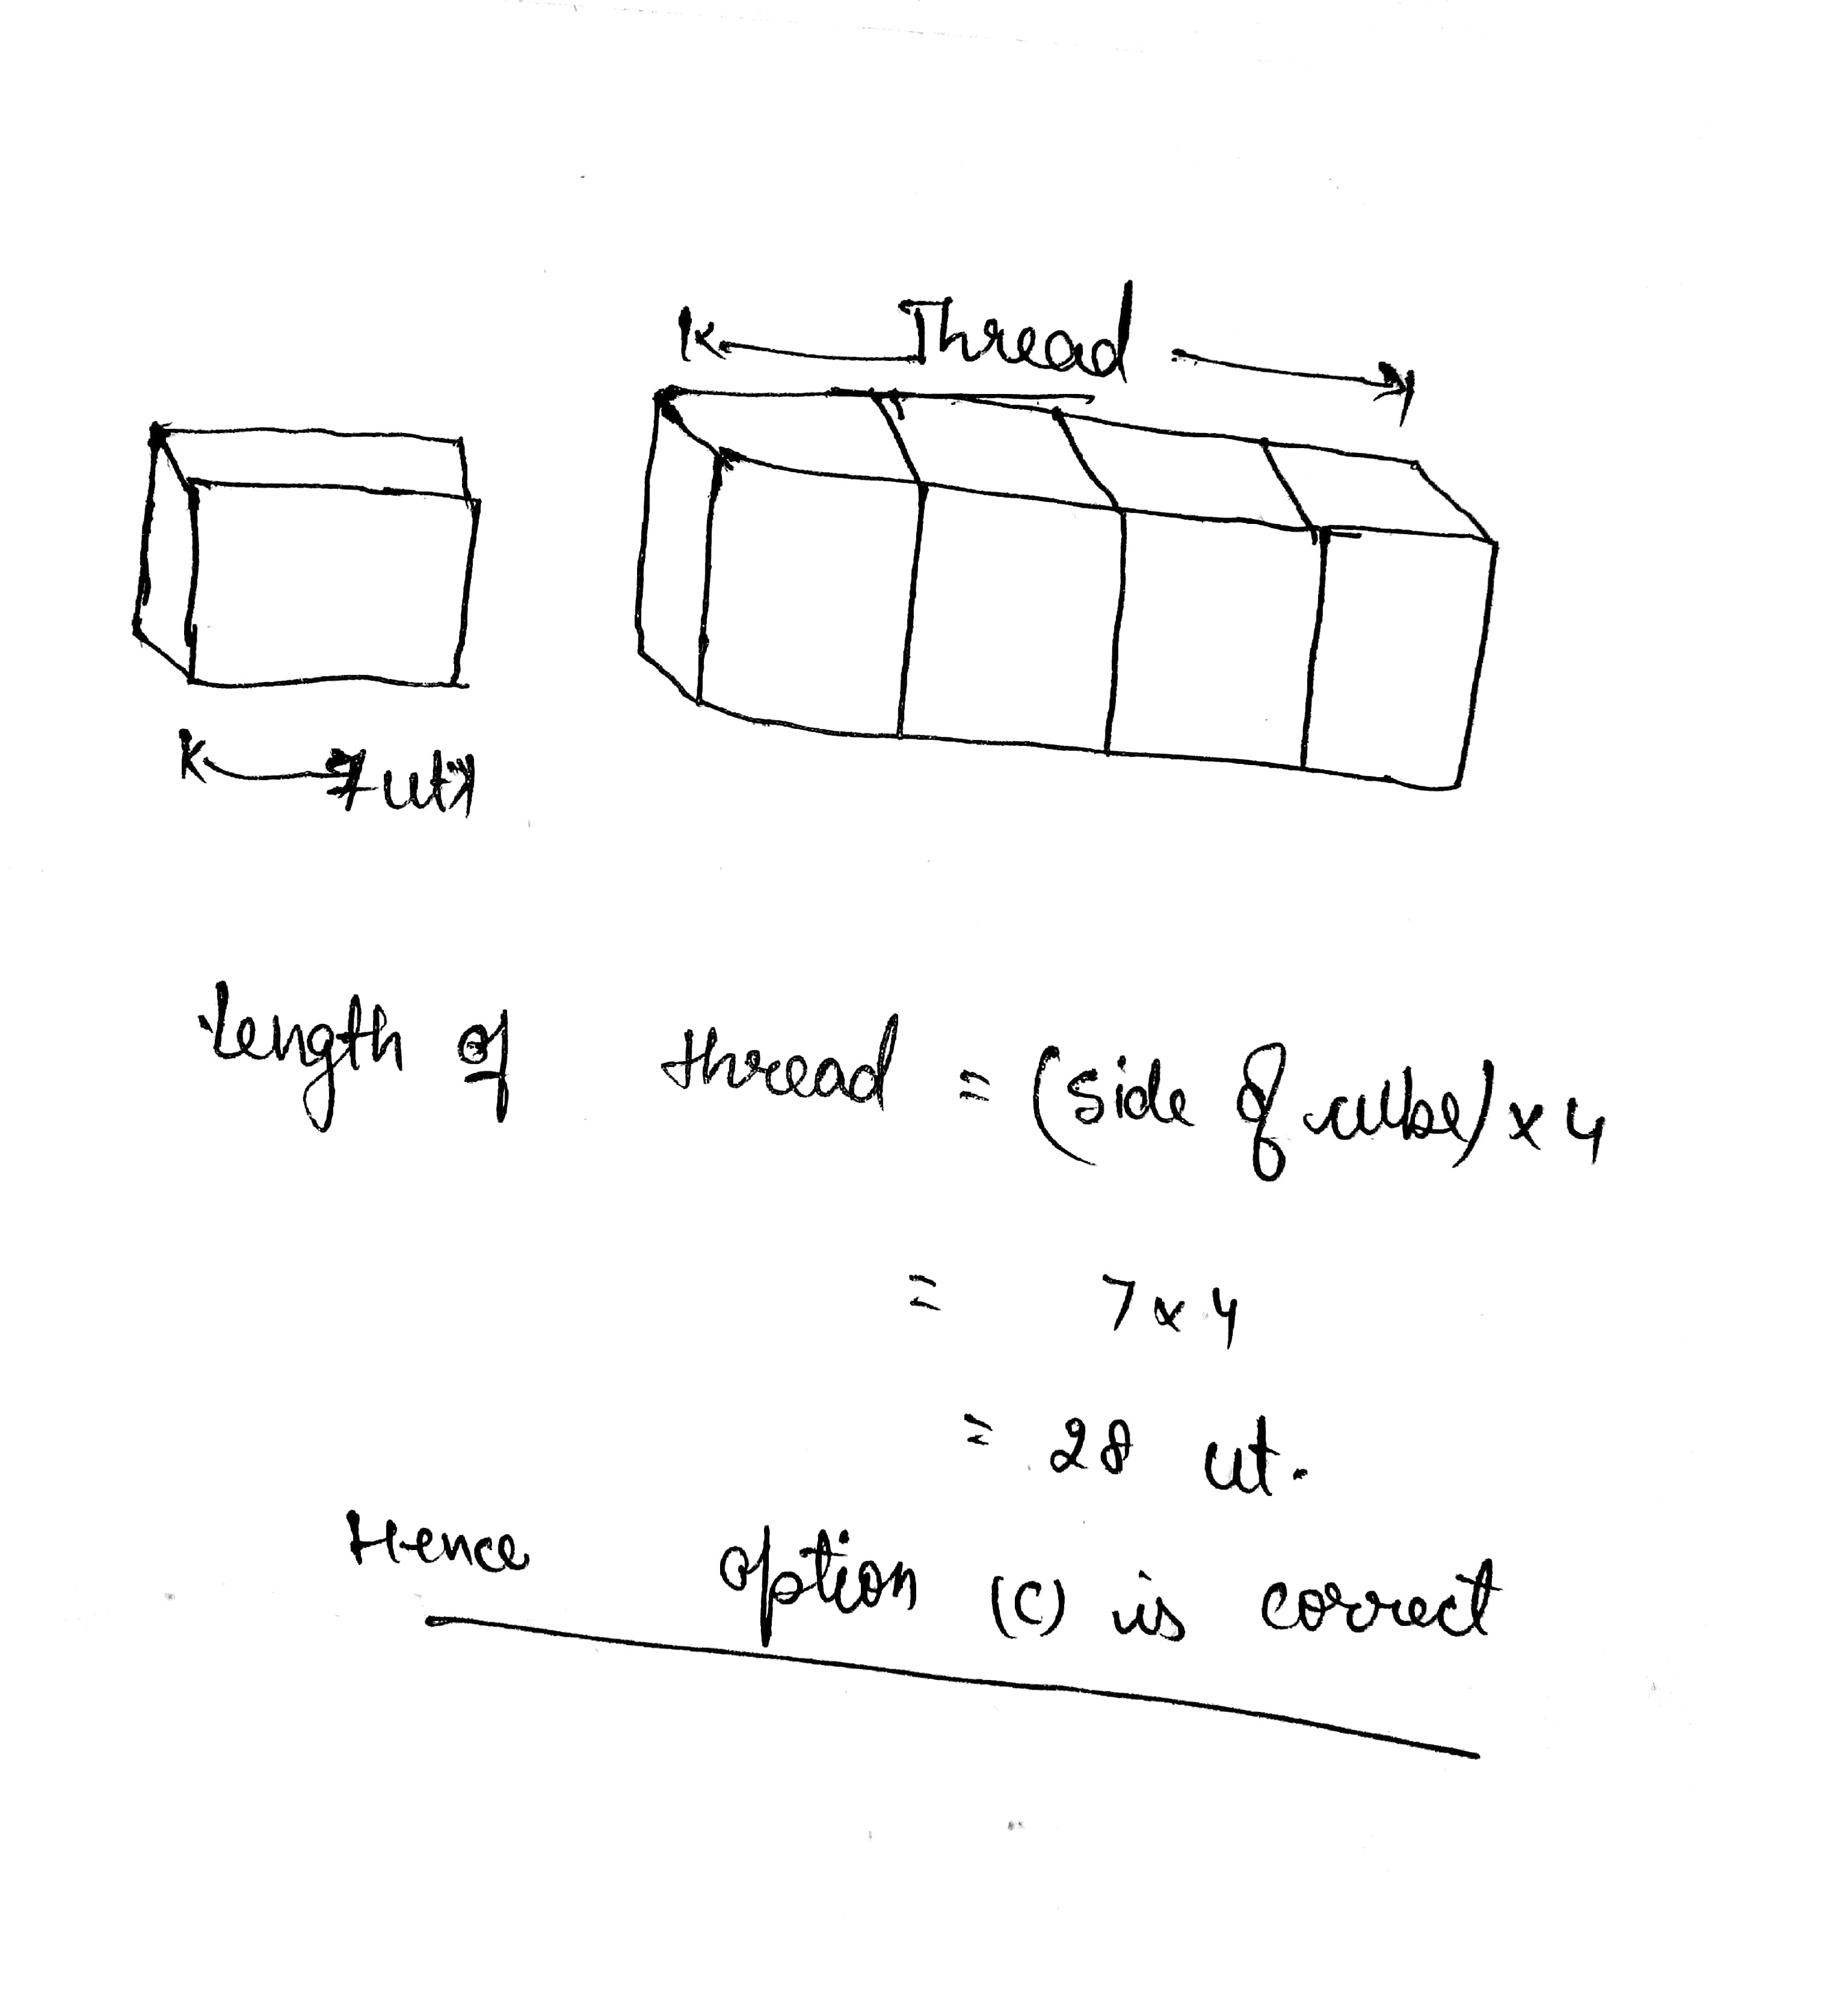 Thread
7 ut
Length of thread = (side of cube) x 4
= 7 x 4
= 28 ut.
Hence option (c) is correct